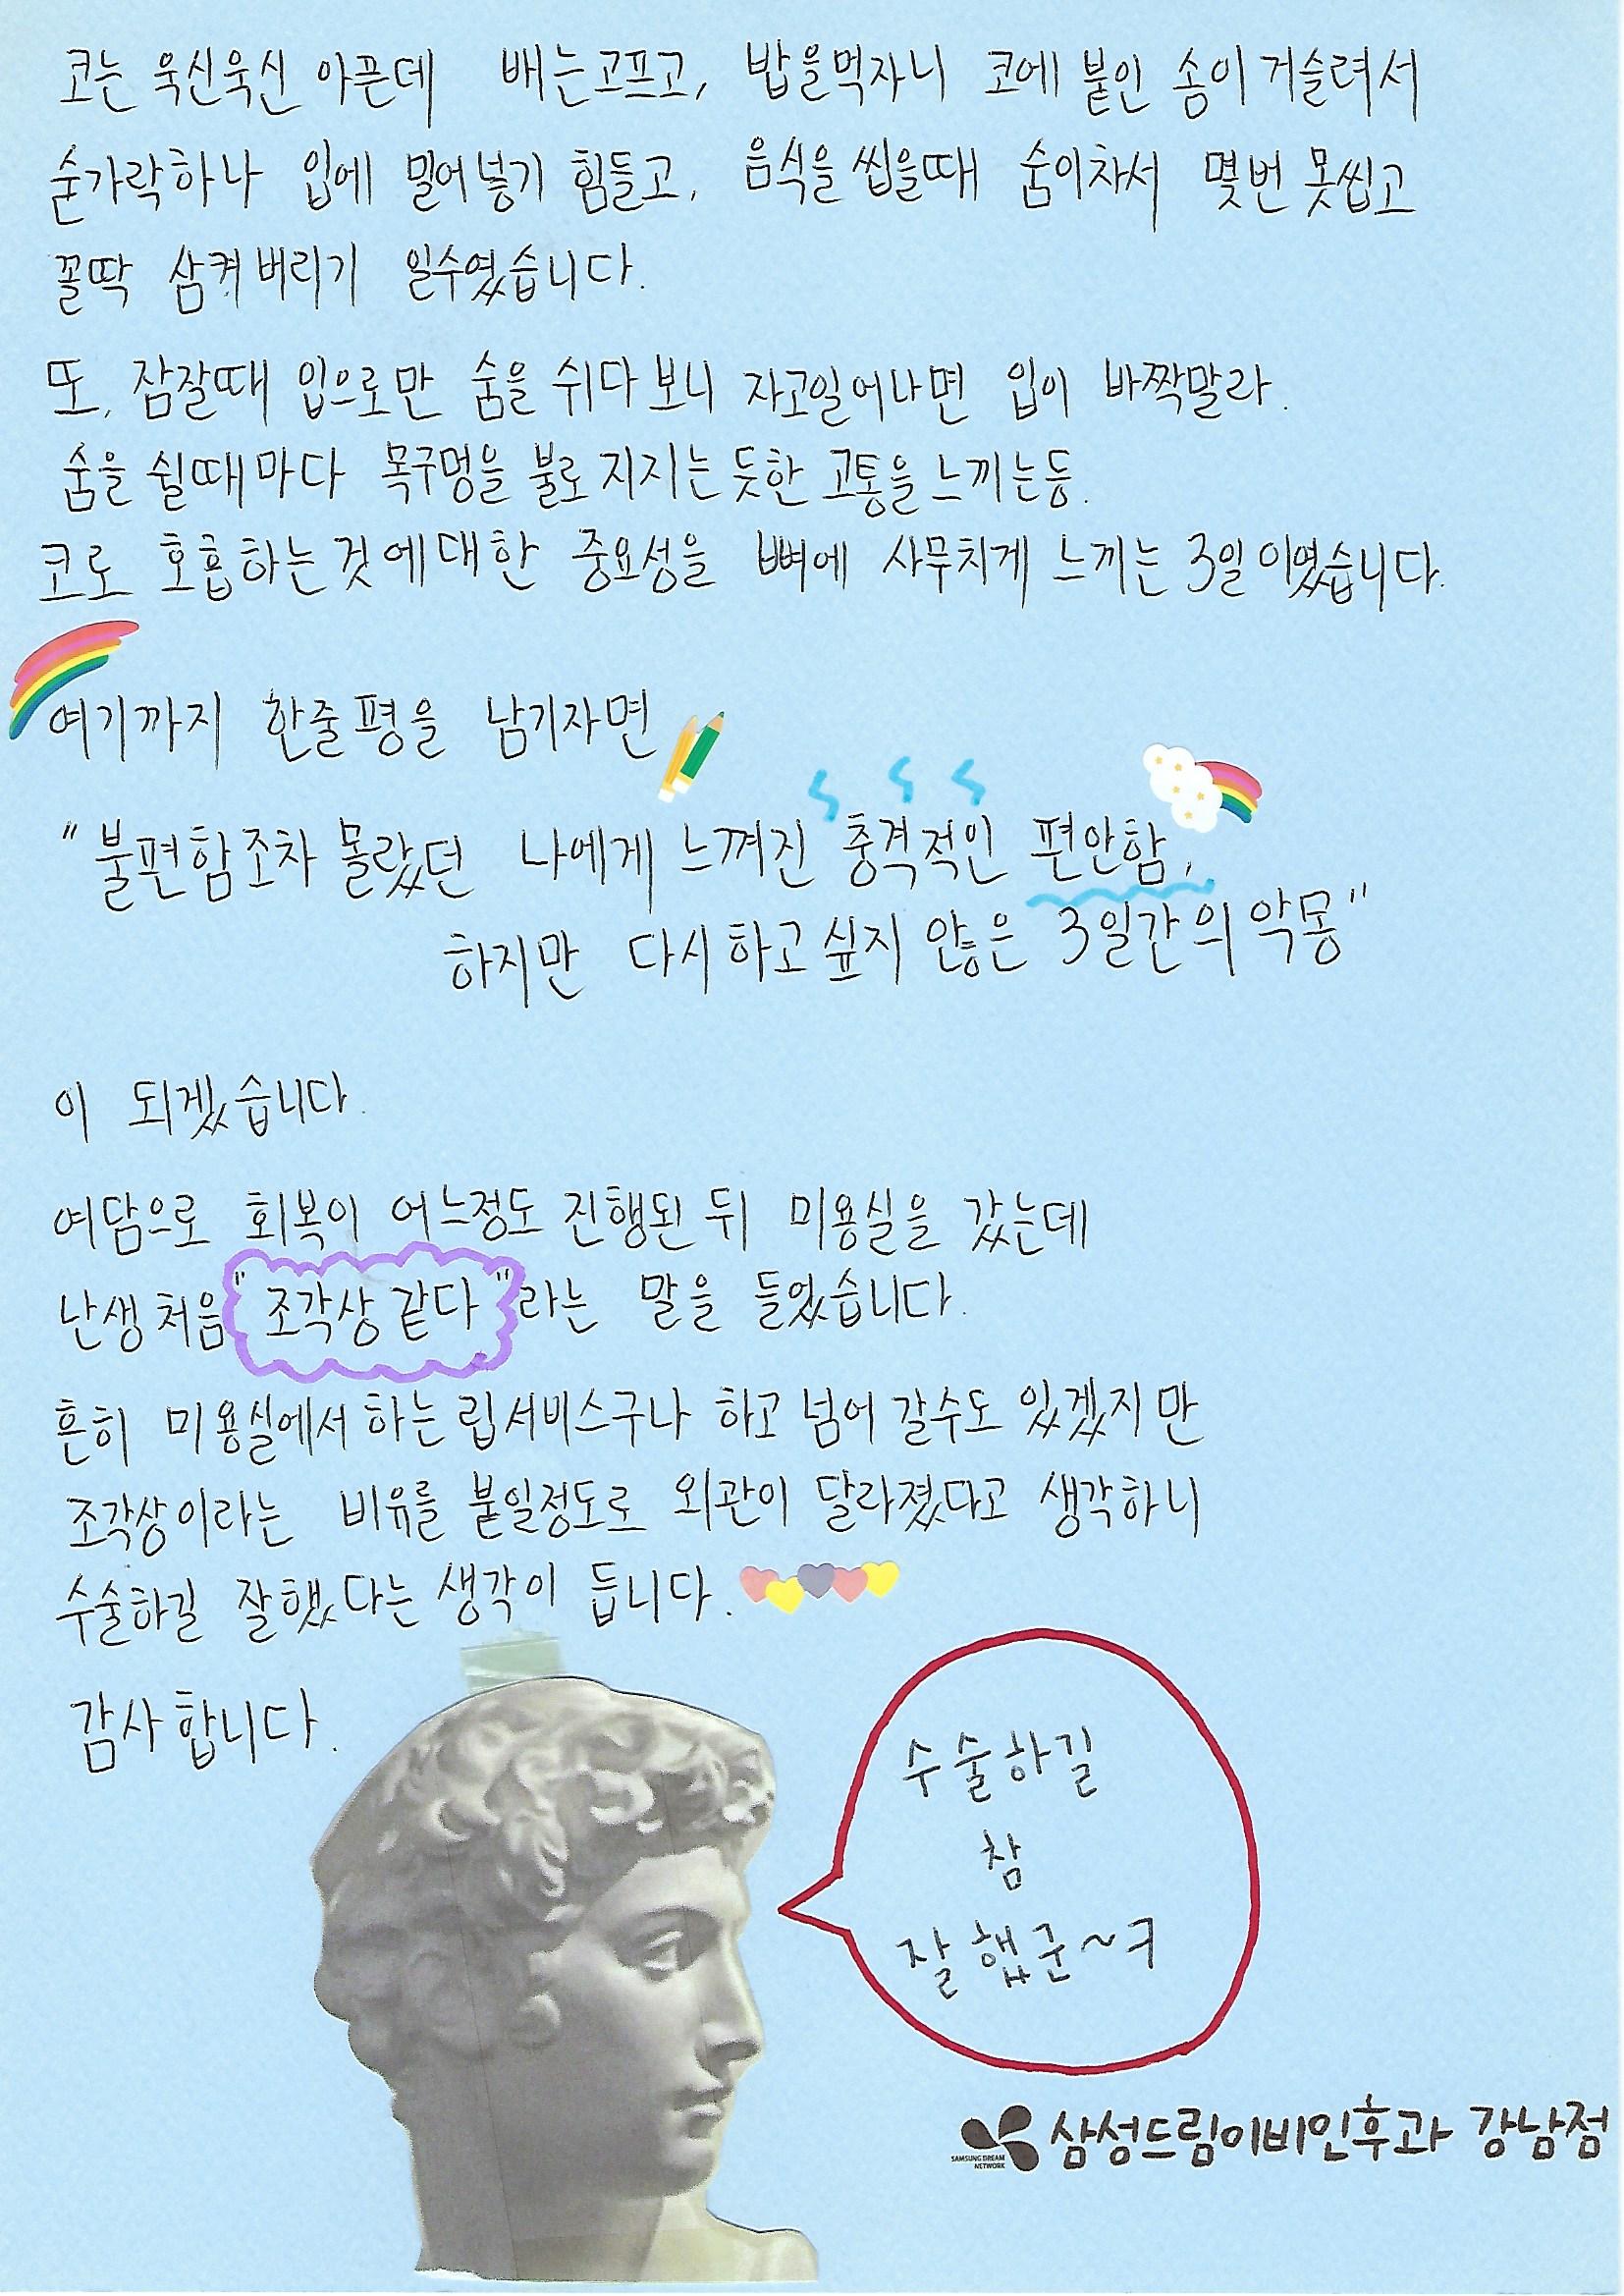 코는 욱신욱신 아픈데 배는고프고, 밥을먹자니 코에 붙인 솜이 거슬려서
숟가락하나 입에 밀어넣기 힘들고, 음식을 씹을때 숨이차서 몇번 못씹고
꼴딱 삼켜버리기 일수였습니다.
또, 잠잘때 입으로만 숨을 쉬다보니 자고일어나면 입이 바짝말라.
숨을 쉴때마다 목구멍을 불로 지지는 듯한 고통을 느끼는등.
코로 호흡하는것에대한 중요성을 뼈에 사무치게 느끼는 3일이였습니다.
여기까지 한줄평을 남기자면
"불편함조차 몰랐던 나에게 느껴진 충격적인 편안함,
하지만 다시하고싶지 않은 3일간의 악몽"
이 되겠습니다.
여담으로 회복이 어느정도 진행된 뒤 미용실을 갔는데
난생처음 "조각상 같다"라는 말을 들었습니다.
흔히 미용실에서 하는 립서비스구나 하고 넘어 갈수도 있겠지만
조각상이라는 비유를 붙일정도로 외관이 달라졌다고 생각하니
수술하길 잘했다는 생각이 듭니다.
감사합니다.
수술하길
참
잘했군~ㅋ
삼성드림이비인후과 강남점
SAMSUNG DREAM
NETWORK